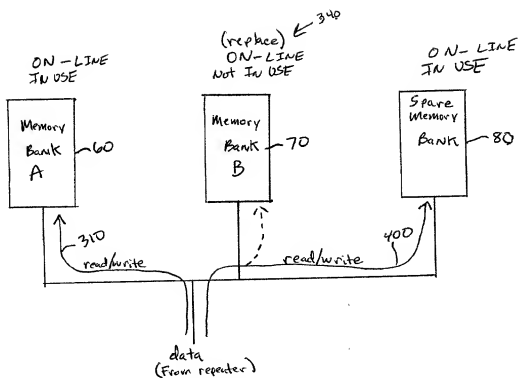 340
(replace)
ON-LINE
IN USE
ON-LINE
Not In USE
ON-LINE
IN USE
Memory
Bank
A
60
Memory
Bank
B
70
Spare
Memory
Bank
80
310
read/write
read/write
400
data
(From repeater)